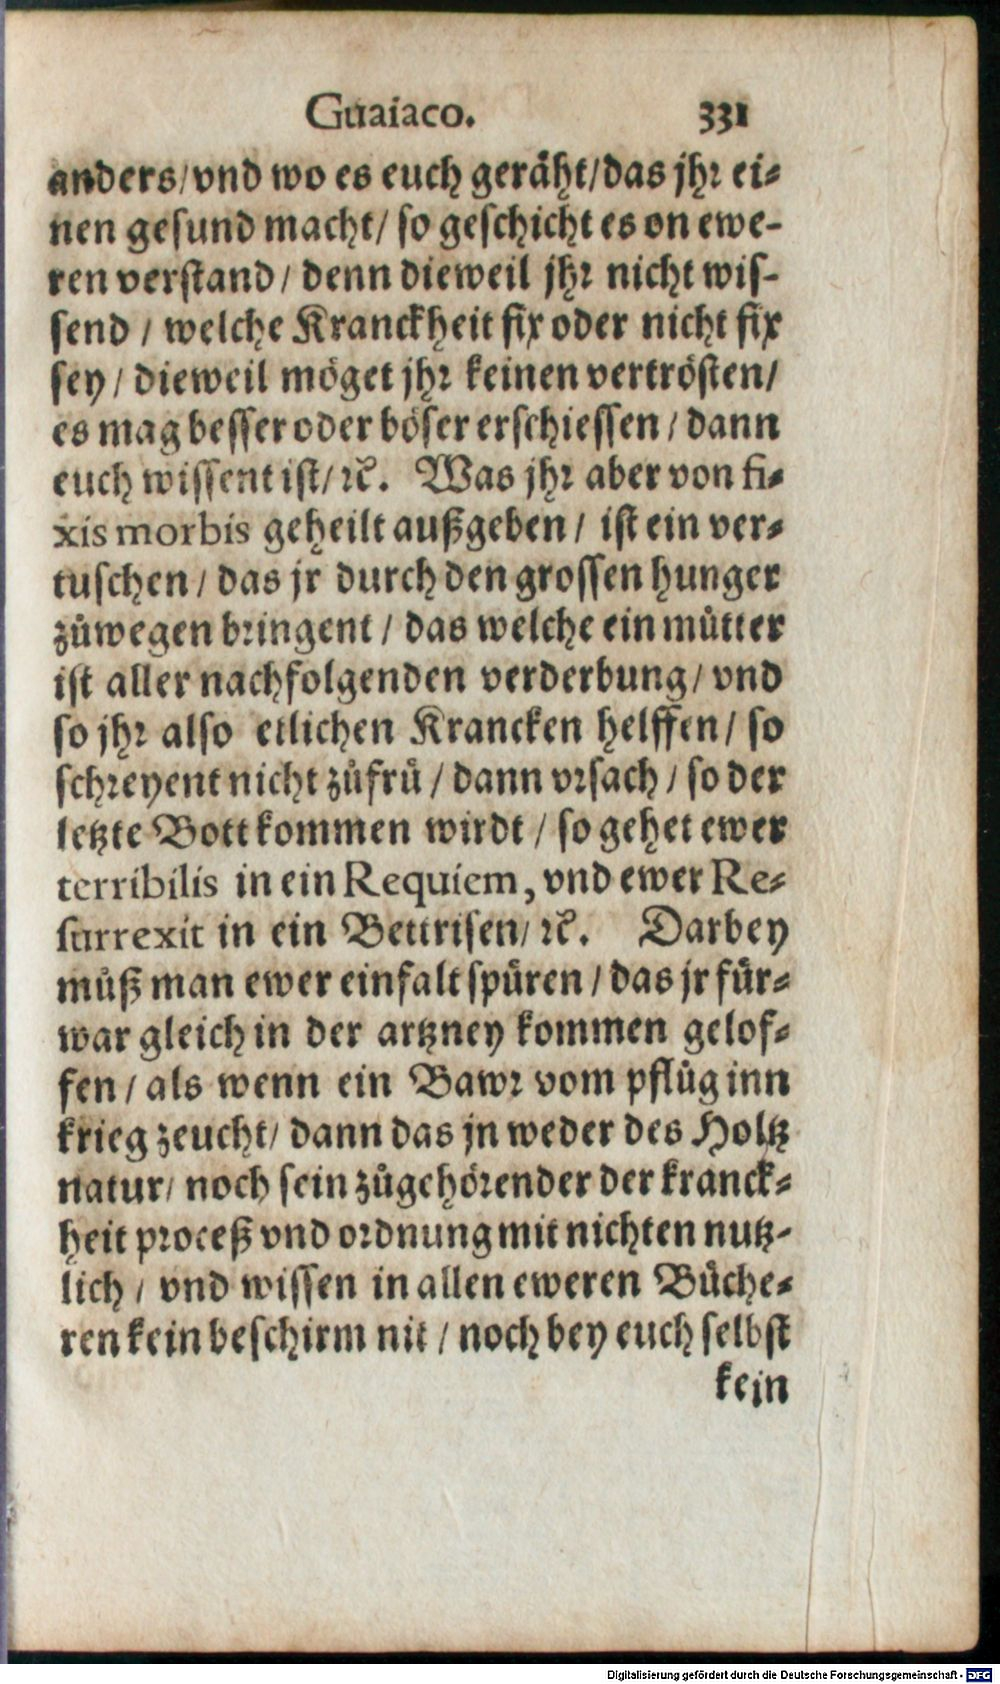 Guaiaco. 331
anders/vnd wo es euch geräht/das jhr ei-
nen gesund macht/ so geschicht es on ewe-
ren verstand/ denn dieweil jhr nicht wis-
send/ welche Kranckheit fix oder nicht fix
sey/ dieweil möget jhr keinen vertrösten/
es mag besser oder böser erschiessen/ dann
euch wissent ist/ꝛc. Was jhr aber von fi-
xis morbis geheilt außgeben/ ist ein ver-
tuschen/ das jr durch den grossen hunger
zůwegen bringent/ das welche ein můtter
ist aller nachfolgenden verderbung/ vnd
so jhr also etlichen Krancken helffen/ so
schreyent nicht zůfrů/ dann vrsach/ so der
letzte Bott kommen wirdt/ so gehet ewer
terribilis in ein Requiem, vnd ewer Re-
surrexit in ein Bettrisen/ ꝛc. Darbey
můß man ewer einfalt spüren/ das jr für-
war gleich in der artzney kommen gelof-
fen/ als wenn ein Bawr vom pflůg inn
krieg zeucht/ dann das jn weder des Holtz
natur/ noch sein zůgehörender der kranck-
heit proceß vnd ordnung mit nichten nutz-
lich/ vnd wissen in allen eweren Büche-
ren kein beschirm nit/ noch bey euch selbst
kein
Digitalisierung gefördert durch die Deutsche Forschungsgemeinschaft - DFG